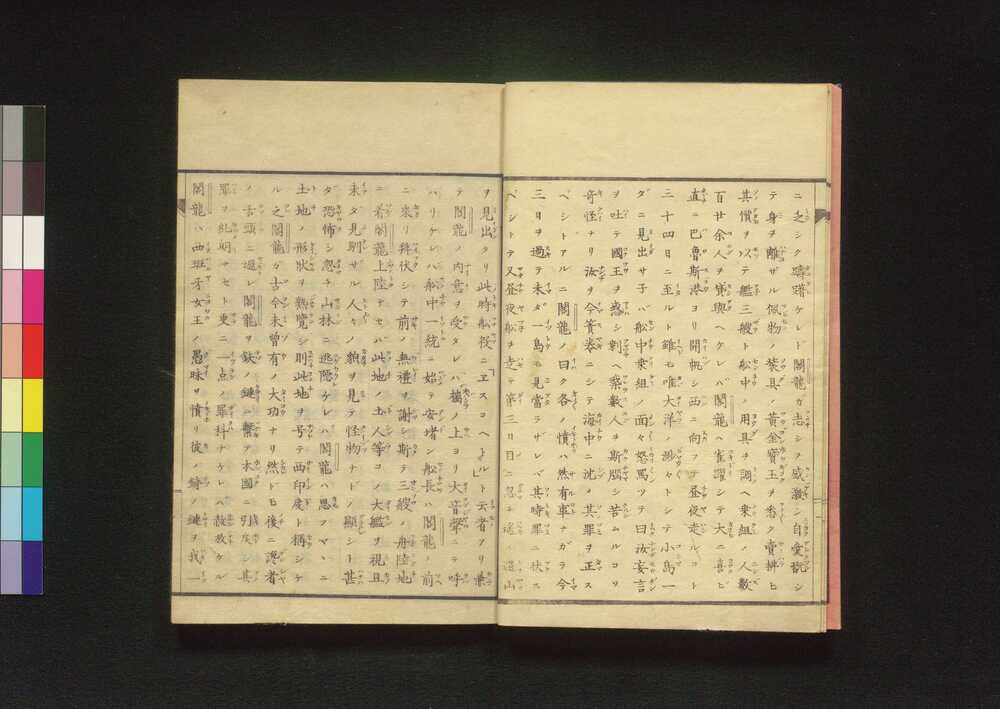 ニ乏シク躊躇ケレド閣龍ガ志シヲ感激シ自愛玩シ
テ身ヲ離ザル佩物ノ装具ノ黄金寳玉ヲ悉ク賣拂ヒ
其價ヲ以テ艦三艘ト船中ノ用具ヲ調ヘ乗組ノ人數
百廿余人ヲ寳與ヘケレバ閣龍ハ雀躍シテ大ニ喜ヒ
直ニ巴魯斯港ヨリ開帆シ西ニ向フテ昼夜走ルコト
三十四日ニ至ルト雖モ唯大洋ノ渺々トシテ小島一
ダニ見出サ子バ船中乗組ノ面々怒罵ツテ曰汝妄言
ヲ吐テ國王ヲ惑シ剰ヘ衆數人ヲ斯艱シ苦ムルコリ
奇怪ナリ汝ヲ今簀巻ニシテ海中ニ沈メ其罪ヲ正ス
ベシトアルニ閣龍ノ曰ク各ノ憤ハ然有事ナガラ今
三日ヲ過テ未ダ一島モ見當ラサレバ其時罪ニ伏ス
ベシトテ又昼夜船ヲ走テ第三日目ニ忽コ遙ノ遠山
ヲ見出タリ此時船役ニヱスコヘトルト云者アリ兼
テ閣龍ノ内意ヲ受タレバ檣ノ上ヨリ大音聲ニテ呼
ハリケレバ船中一統ニ始テ安堵シ船長ハ閣龍ノ前
ニ来リ拜伏シテ前ノ無禮ヲ謝シ斯テ三艘ノ舟陸地
ニ着閣龍上陸ナセバ此地ノ土人等コノ大艦ヲ視且
未タ見馴サル人々ノ貌ヲ見テ怪物ナドノ顯シト甚
タ恐怖シ忽チ山林ニ逃隠ケレハ閣龍ハ思フマヽニ
土地ノ形状ヲ熟覧シ則此地ヲ号テ西印度ト稱シケ
ル之閣龍ガ古今未曾有ノ大功ナリ然トモ後ニ讒者
ノ舌頭ニ遇レ閣龍ヲ鉄ノ鏈ニ繋テ本國ニ引戻シ其
罪ヲ糺明セセト更ニ一点ノ罪科ナケレハ赦放ケル
閣龍ハ西班牙女王ノ愚昧ヲ憤リ彼ノ縛ノ鏈ヲ我一